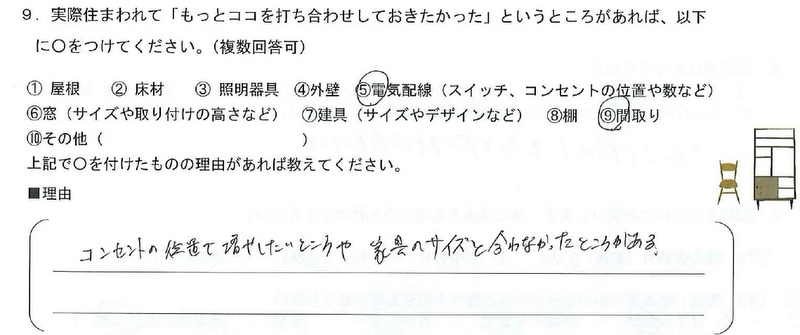 ９．実際住まわれて「もっとココを打ち合わせしておきたかった」というところがあれば、以下
に〇をつけてください。（複数回答可）
① 屋根　② 床材　③ 照明器具　④外壁　⑤電気配線（スイッチ、コンセントの位置や数など）
⑥窓（サイズや取り付けの高さなど）　⑦建具（サイズやデザインなど）　⑧棚　⑨間取り
⑩その他（　　　　　　　　　　　　）
上記で〇を付けたものの理由があれば教えてください。
■理由
コンセントの位置で増やしたいところや 家具のサイズと合わなかったところがある。